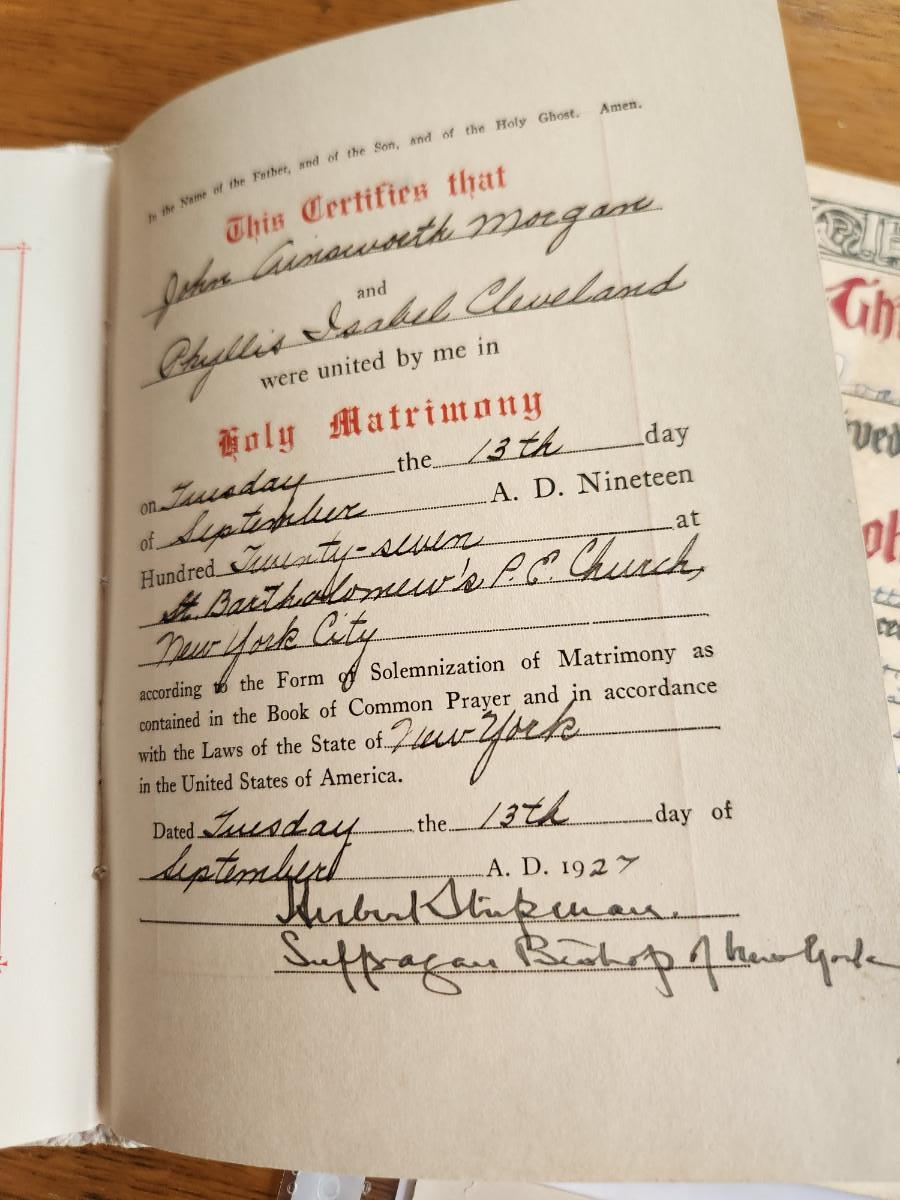 In the Name of the Father, and of the Son, and of the Holy Ghost. Amen.
This Certifies that
John Ainsworth Morgan
and
Phyllis Isabel Cleveland
were united by me in
Holy Matrimony
on Tuesday the 13th day
of September A. D. Nineteen
Hundred Twenty-seven at
St. Bartholomew's P. E. Church,
New York City
according to the Form of Solemnization of Matrimony as
contained in the Book of Common Prayer and in accordance
with the Laws of the State of New York
in the United States of America.
Dated Tuesday the 13th day of
September A. D. 1927
Herbert Shipman.
Suffragan Bishop of New York